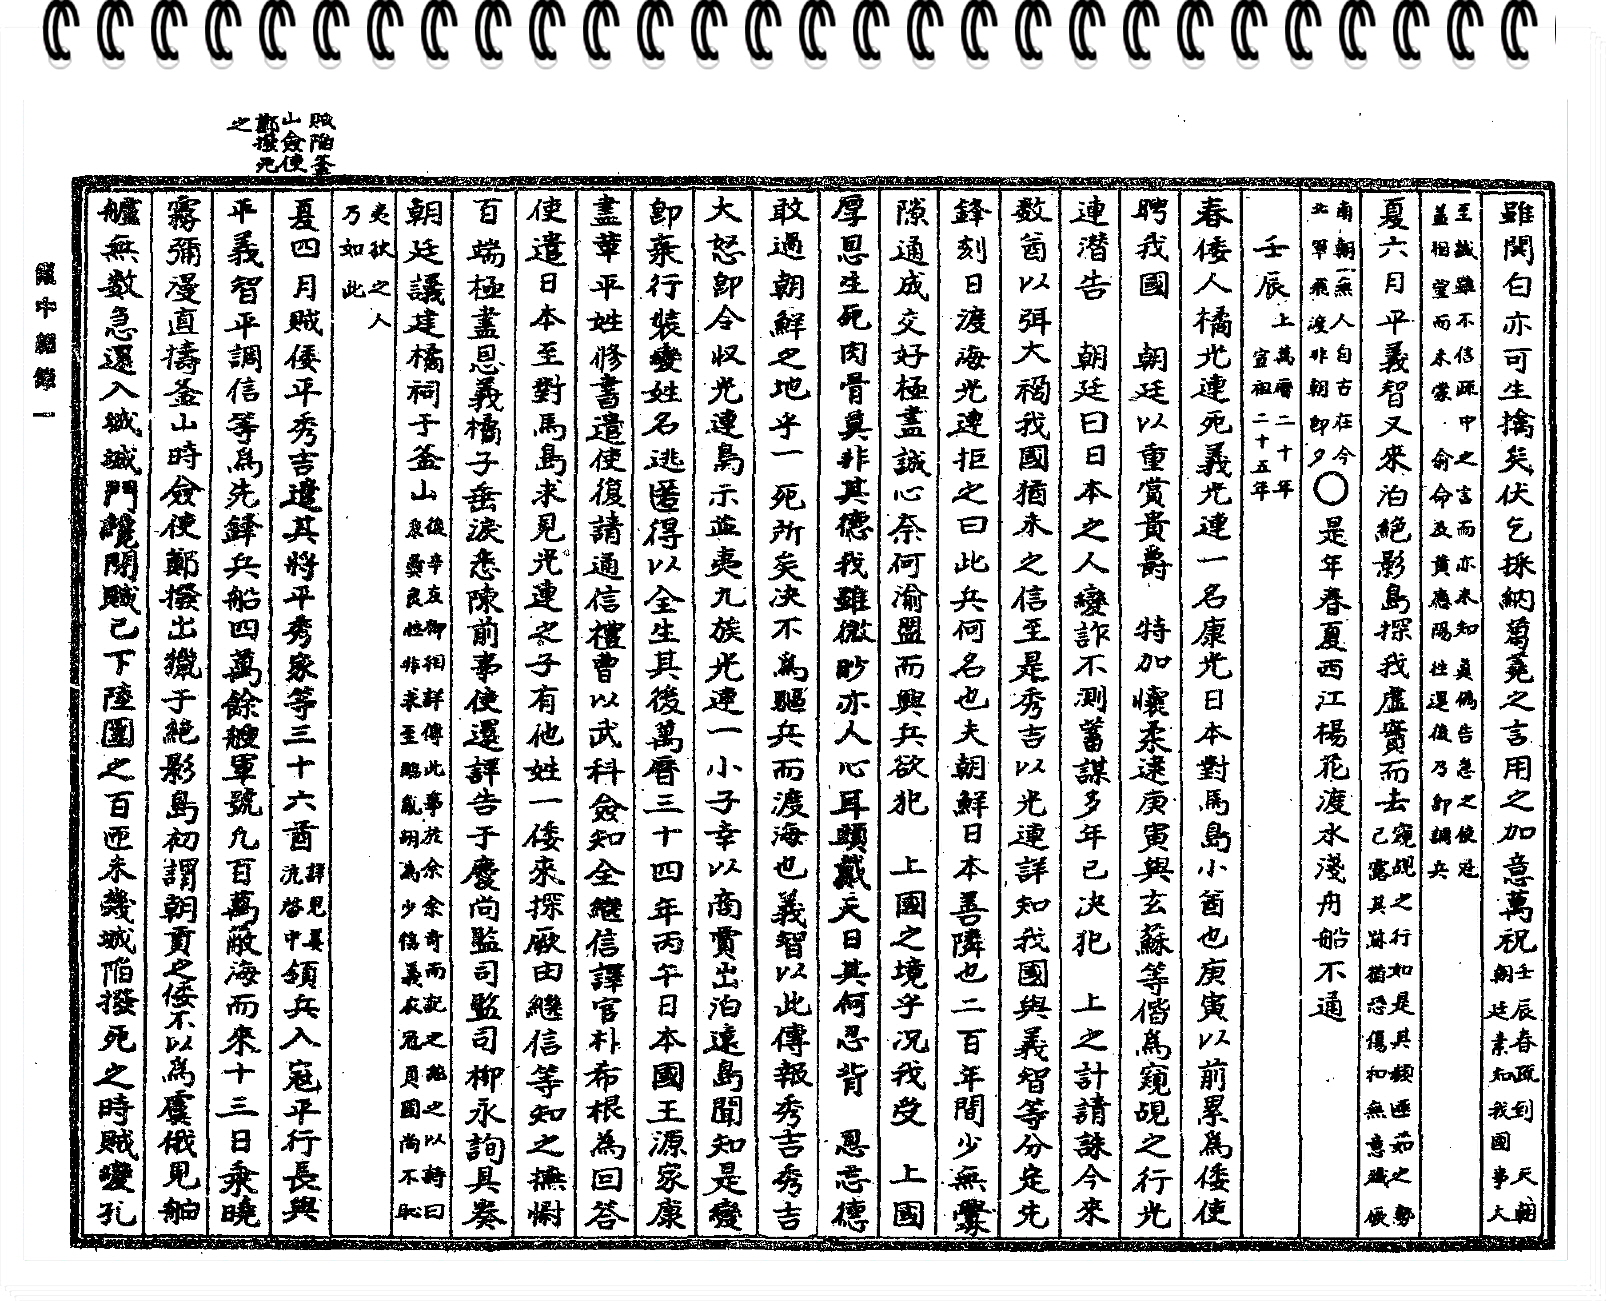 賊陷釜
山僉使
鄭撥死
之
雖関白亦可生擒矣伏乞採納蒭蕘之言用之加意萬祝
壬辰春疏到 天朝
朝廷素知我國事大
至誠雖不信疏中之言而亦未知眞偽告急之使冠
盖相望而未蒙 俞命及黃應陽往還後乃卽調兵
夏六月平義智又來泊絶影島探我虛實而去
窺覘之行如是其頻匝茹之勢
已露其跡猶恐傷和無意殱厥
南朝一無人自古在今
北軍飛渡非朝卽夕
〇是年春夏西江楊花渡水淺舟船不通
壬辰
上萬曆二十年
宣祖二十五年
春倭人橘光連死義光連一名康光日本對馬島小酋也庚寅以前累爲倭使
聘我國 朝廷以重賞貴爵 特加懷柔逮庚寅與玄蘇等偕爲窺覘之行光
連潜告 朝廷曰日本之人變詐不測蓄謀多年已决犯 上之計請誅今來
数酋以弭大禍我國猶未之信至是秀吉以光連詳知我國與義智等分定先
鋒刻日渡海光連拒之曰此兵何名也夫朝鮮日本善隣也二百年間少無釁
隙通成交好極盡誠心奈何渝盟而興兵欲犯 上國之境乎况我受 上國
厚恩生死肉骨莫非其德我雖微眇亦人心耳頭戴天日其何忍背 恩忘德
敢過朝鮮之地乎一死所矣决不爲驅兵而渡海也義智以此傳報秀吉秀吉
大怒卽令収光連梟示並夷九族光連一小子幸以商賈出泊遠島聞知是變
卽棄行裝變姓名逃匿得以全生其後萬曆三十四年丙午日本國王源家康
盡華平姓修書遣使復請通信禮曹以武科僉知全繼信譯官朴希根為回答
使遣日本至對馬島求見光連之子有他姓一倭來探厥由繼信等知之撫慰
百端極盡恩義橘子垂淚悉陳前事使還譯告于慶尚監司監司柳永詢具奏
朝廷議建橘祠于釜山
後辛左御相詳傳此事於余余奇而記之繼之以詩曰
秉彜良性非求至臨亂翊為少信義衣冠員國尚不恥
夷狄之人
乃如此
夏四月賊倭平秀吉遣其將平秀家等三十六酋
詳見晏
沈啓中
領兵入冦平行長與
平義智平調信等爲先鋒兵船四萬餘艘軍號九百萬蔽海而來十三日乘曉
霧彌漫直擣釜山時僉使鄭撥出獵于絶影島初謂朝貢之倭不以爲虞俄見舳
艫無数急還入城城門纔閉賊已下陸圍之百匝未幾城陷撥死之時賊變孔
亂中雜錄一